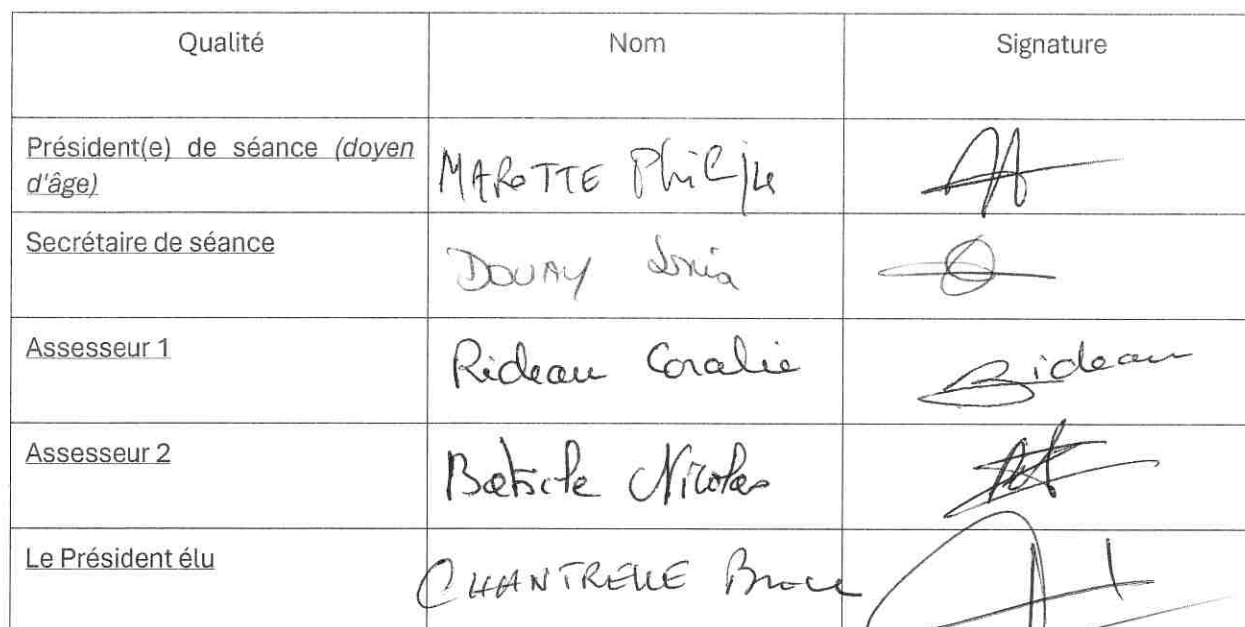 Qualité Nom Signature
Président(e) de séance (doyen
d'âge)
MAROTTE Philippe
Secrétaire de séance
DOUAY Sonia
Assesseur 1
Rideau Coralie
Rideau
Assesseur 2
Nicolas
Le Président élu
CHANTRELLE